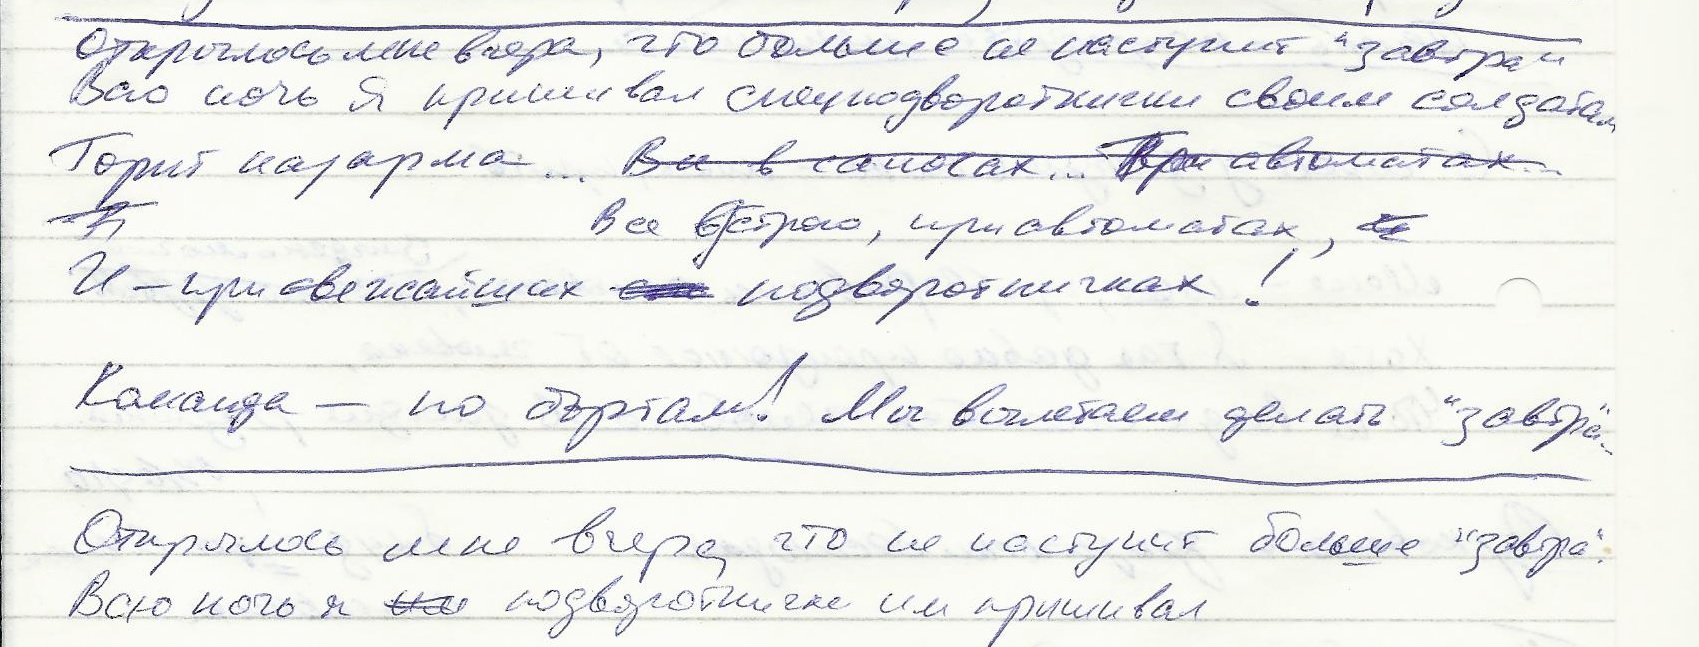 Открылось мне вчера, что больше не наступит "завтра"
Всю ночь я пришивал подворотнички своим солдатам
Горит казарма... Вы в сапогах... При автоматах...
Все в строю, при автоматах,
И – при свежайших подворотничках!
Команда – по бортам! Мы вылетаем делать "завтра".
Открылось мне вчера, что не наступит больше "завтра".
Всю ночь я подворотнички им пришивал